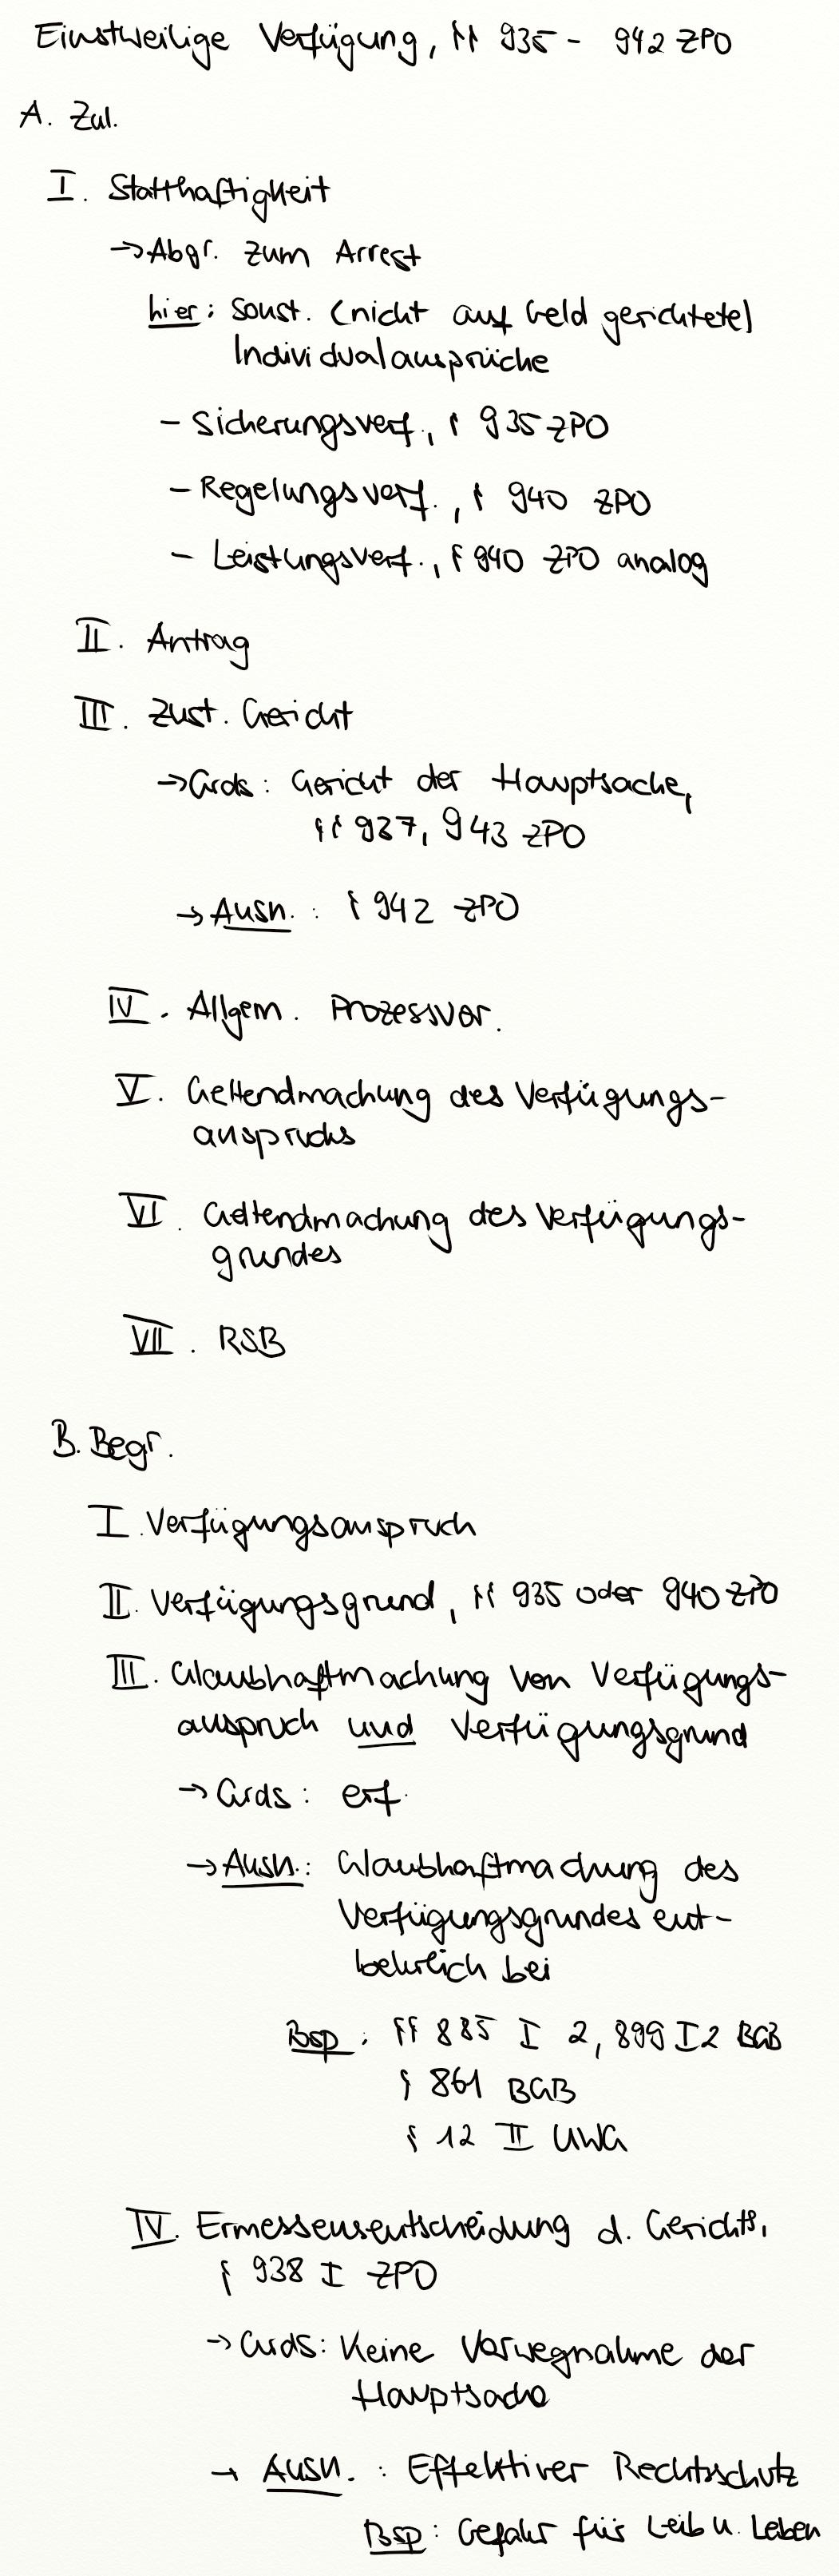 Einstweilige Verfügung, §§ 935 - 942 ZPO
A. Zul.
I. Statthaftigkeit
→ Abgr. zum Arrest
hier: Sonst. (nicht auf Geld gerichtete)
Individualansprüche
- Sicherungsverf., § 935 ZPO
- Regelungsverf., § 940 ZPO
- Leistungsverf., § 940 ZPO analog
II. Antrag
III. Zust. Gericht
→ Grds: Gericht der Hauptsache,
§§ 937, 943 ZPO
→ Ausn.: § 942 ZPO
IV. Allgem. Prozessvor.
V. Geltendmachung des Verfügungs-
anspruchs
VI. Geltendmachung des Verfügungs-
grundes
VII. RSB
B. Begr.
I. Verfügungsanspruch
II. Verfügungsgrund, §§ 935 oder 940 ZPO
III. Glaubhaftmachung von Verfügungs-
anspruch und Verfügungsgrund
→ Grds: erf.
→ Ausn.: Glaubhaftmachung des
Verfügungsgrundes ent-
behrlich bei
Bsp: §§ 885 I 2, 899 I 2 BGB
§ 861 BGB
§ 12 II UWG
IV. Ermessensentscheidung d. Gerichts,
§ 938 I ZPO
→ Grds: Keine Vorwegnahme der
Hauptsache
→ Ausn.: Effektiver Rechtsschutz
Bsp: Gefahr für Leib u. Leben